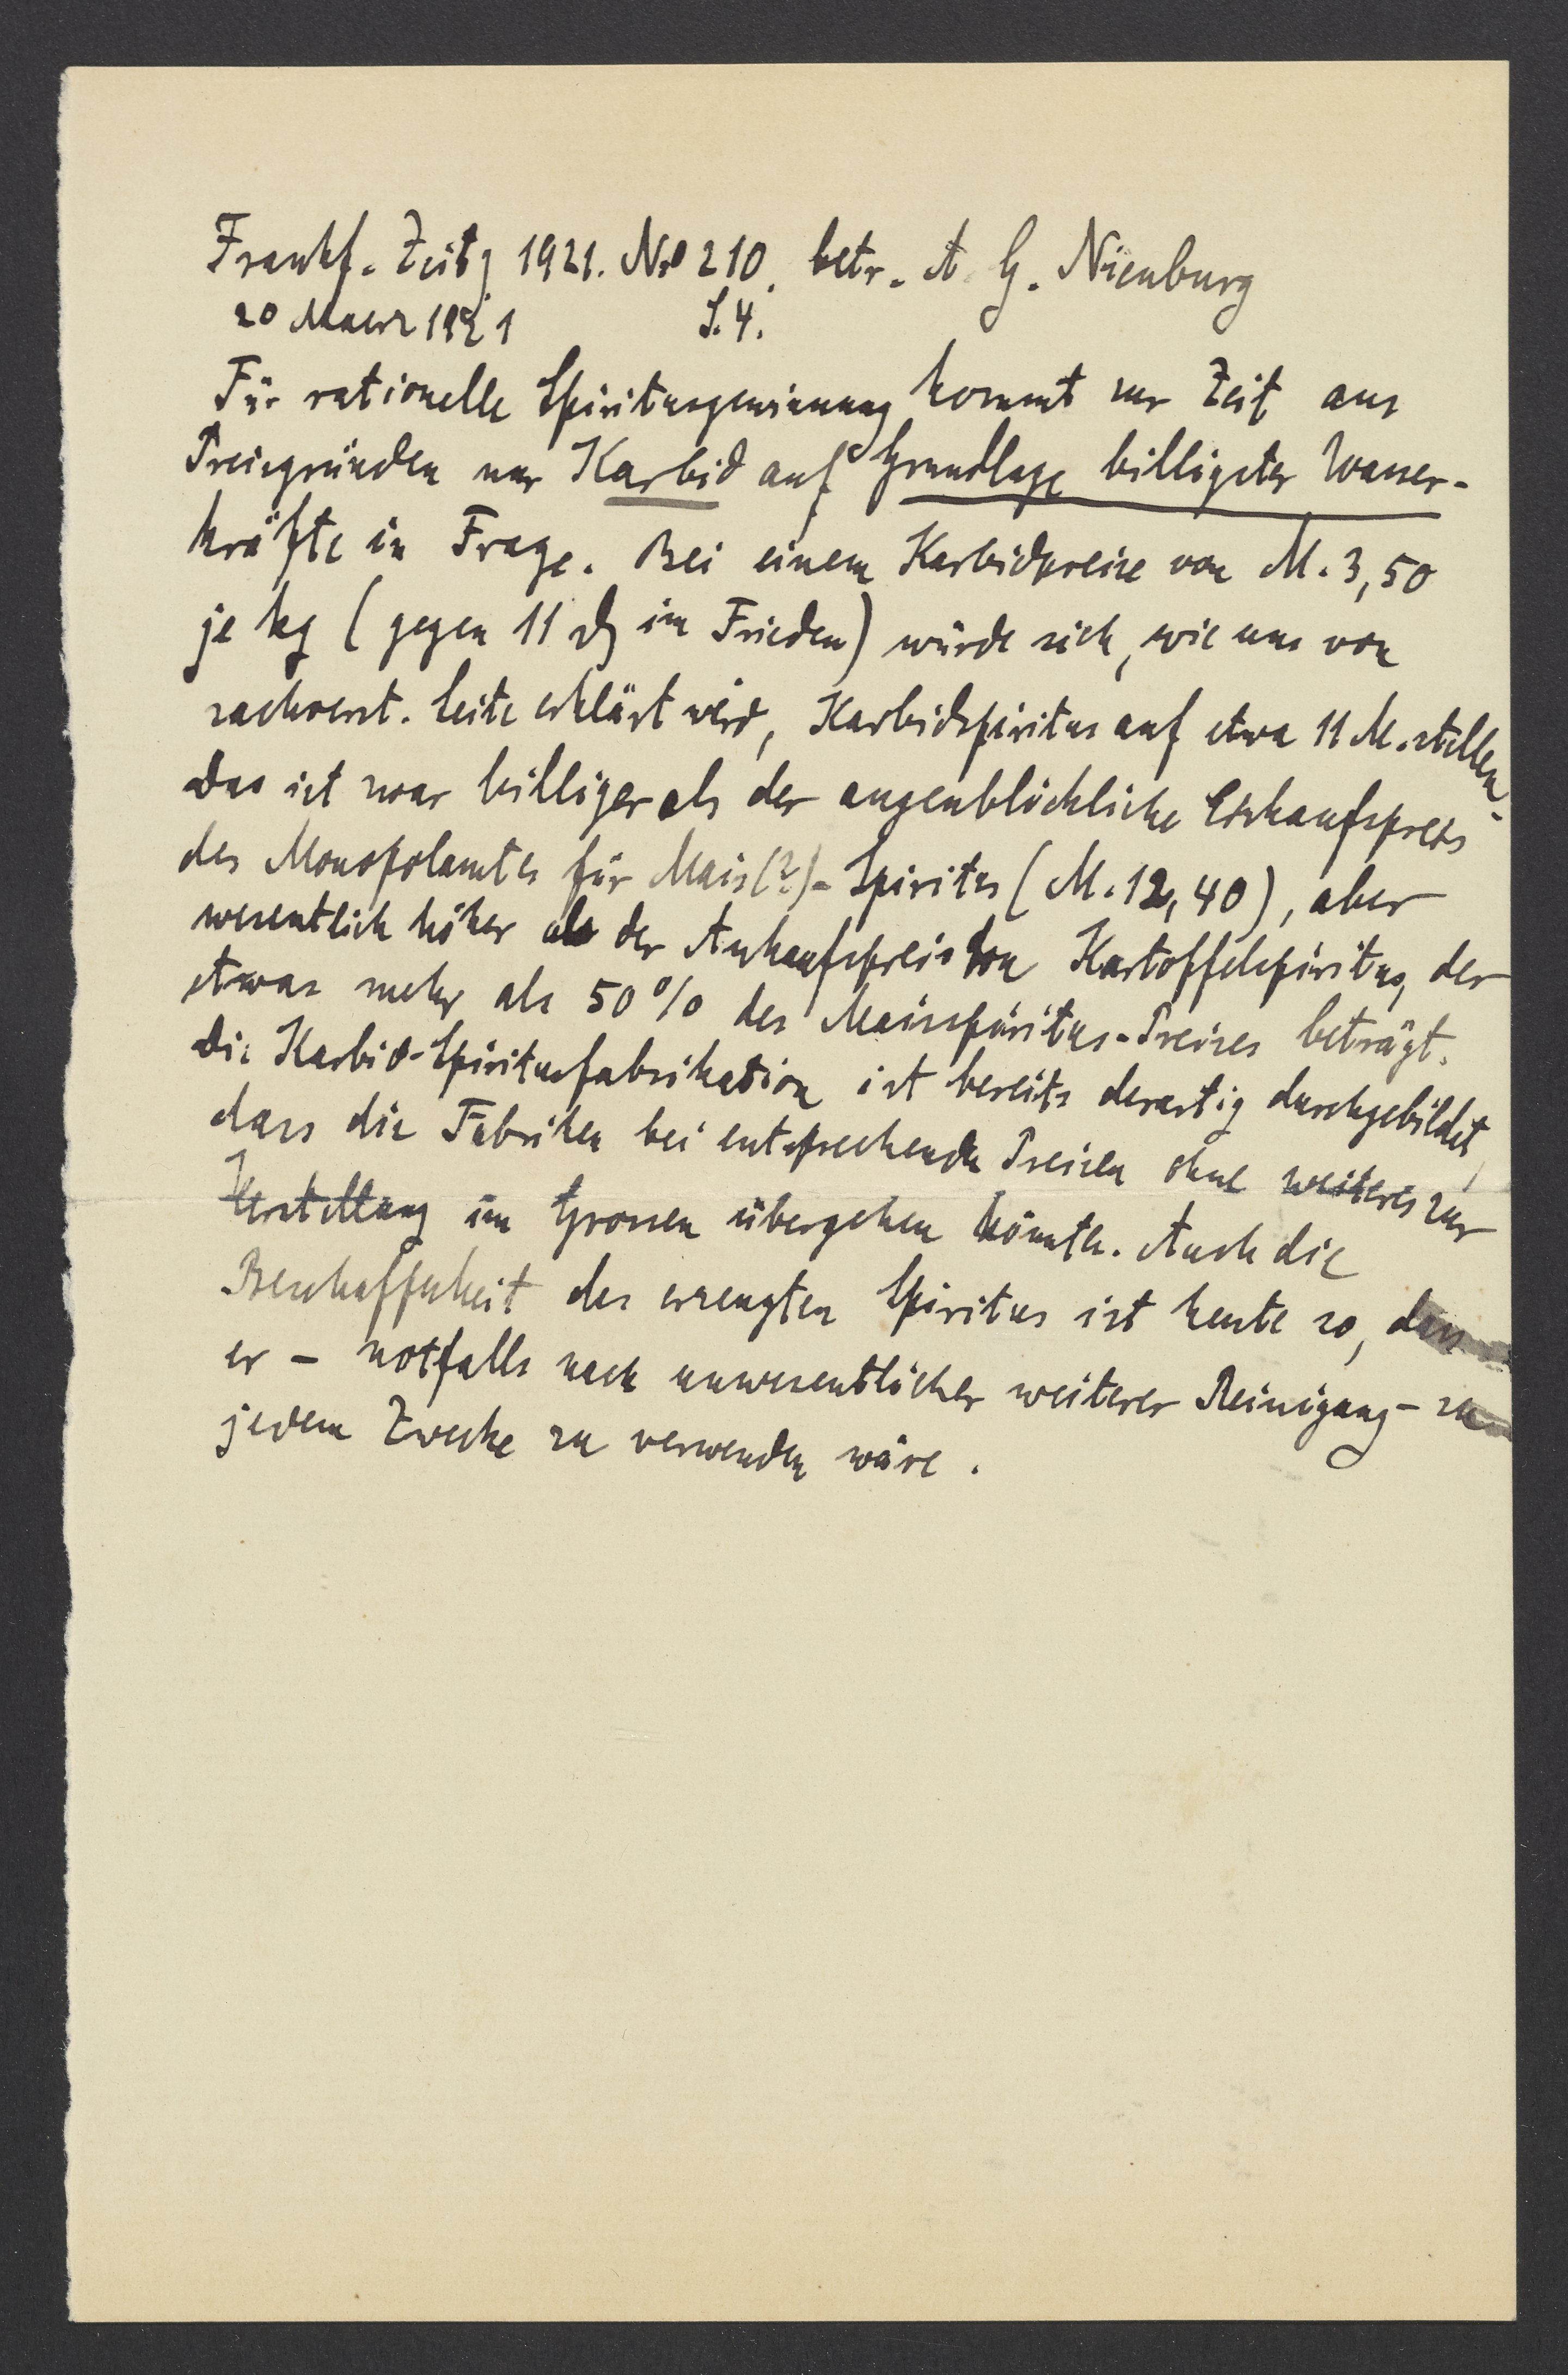 Frankf. Zeitg 1921. No 210. betr. A. G. Nienburg
20 Maerz 1921 S. 4.
Für rationelle Spiritusgewinnung kommt zur Zeit aus
Preisgründen nur Karbid auf Grundlage billigster Wasser-
kräfte in Frage. Bei einem Karbidpreise von M. 3,50
je kg (gegen 11 ₰ im Frieden) würde sich, wie uns von
sachverst. Seite erklärt wird, Karbidspiritus auf etwa 11 M. stellen.
Das ist zwar billiger als der augenblickliche
des Monopolamtes für Mais(?)-Spiritus (M. 12,40), aber
wesentlich höher als der Ankaufspreis von Kartoffelspiritus, der
etwas mehr als 50% des Maisspiritus-Preises beträgt.
Die Karbid-Spiritusfabrikation ist bereits derartig durchgebildet,
dass die Fabriken bei entsprechenden Preisen ohne weiteres zur
Herstellung im Grossen übergehen könnten. Auch die
Beschaffenheit des erzeugten Spiritus ist heute so, dass
er – notfalls nach unwesentlicher weiterer Reinigung – zu
jedem Zwecke zu verwenden wäre.